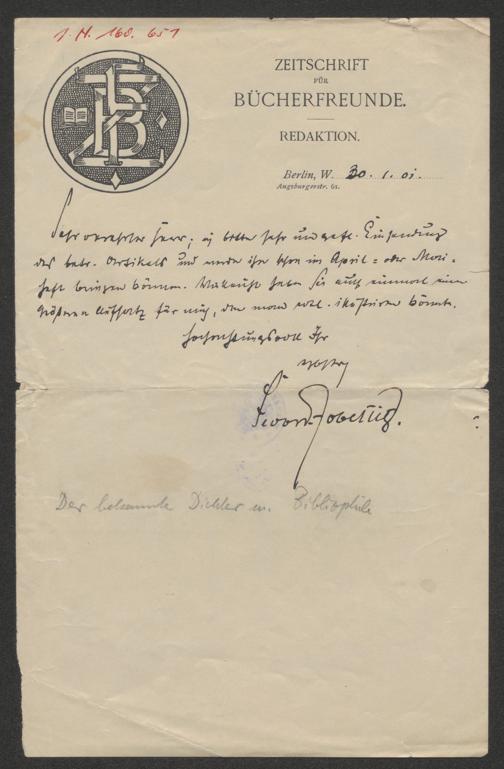 J. N. 168.651
ZEITSCHRIFT
FÜR
BÜCHERFREUNDE.
REDAKTION.
Berlin, W. 30. 1. 01.
Augsburgerstr. 61.
Sehr verehrter Herr, ich bitte sehr um gefl. Einsendung
des betr. Artikels und werde ihn schon im April= oder Mai=
heft bringen können. Vielleicht haben Sie auch einmal einen
größeren Aufsatz für mich, den man evtl. illustriren könnte.
Hochachtungsvoll Ihr
Zobeltitz.
Der bekannte Dichter u. Bibliophile